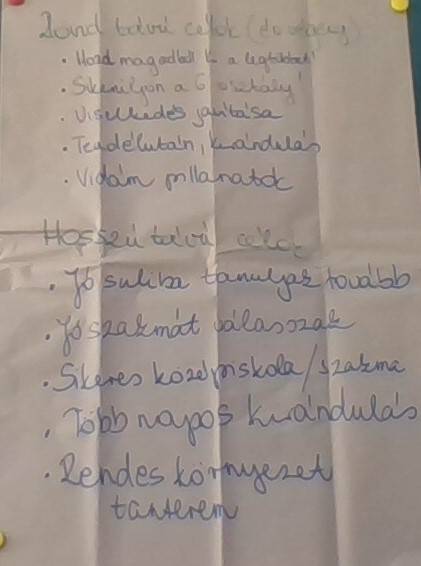 távú célok
• Hozd magadból ki a legtöbbet!
• Sikerüljön a 6 osztály!
• Viselkedés javítása
• Teadélután, kirándulás
• Vidám pillanatok
Hosszú távú célok
• Jó suliba tanuljak tovább
• Jó szakmát válasszak
• Sikeres középiskola/szakma
• Több napos kirándulás
• Rendes környezet
tanterem